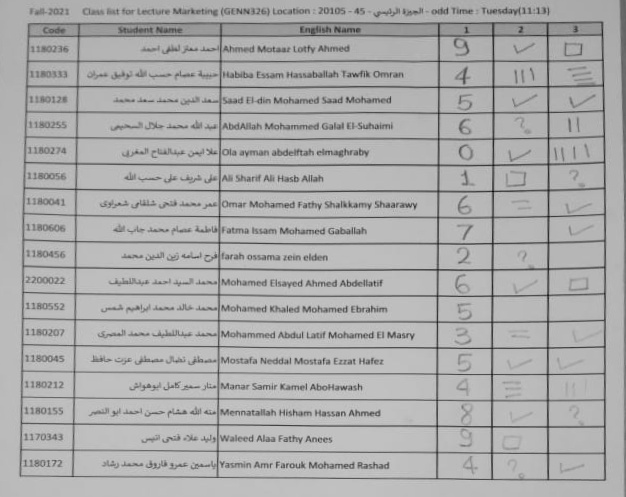 Fall-2021 Class list for Lecture Marketing (GENN326) Location : 20105 - 45 - الجيزة الرئيسي - odd Time : Tuesday(11:13)
Code Student Name English Name 1 2 3
1180236 احمد معتز لطفى احمد Ahmed Motaaz Lotfy Ahmed 9 ✓ □
1180333 حبيبة عصام حسب الله توفيق عمران Habiba Essam Hassaballah Tawfik Omran 4 ||| ☰
1180128 سعد الدين محمد سعد محمد Saad El-din Mohamed Saad Mohamed 5 ✓ ✓
1180255 عبد الله محمد جلال السحيمى AbdAllah Mohammed Galal El-Suhaimi 6 ? ||
1180274 علا ايمن عبدالفتاح المغربي Ola ayman abdelftah elmaghraby 0 ✓ ||||
1180056 على شريف على حسب الله Ali Sharif Ali Hasb Allah 1 □ ?
1180041 عمر محمد فتحى شلقامى شعراوى Omar Mohamed Fathy Shalkkamy Shaarawy 6 = ✓
1180606 فاطمة عصام محمد جاب الله Fatma Issam Mohamed Gaballah 7 ✓
1180456 فرح اسامه زين الدين محمد farah ossama zein elden 2 ?
2200022 محمد السيد احمد عبداللطيف Mohamed Elsayed Ahmed Abdellatif 6 ✓ □
1180552 محمد خالد محمد ابراهيم شمس Mohamed Khaled Mohamed Ebrahim 5
1180207 محمد عبداللطيف محمد المصرى Mohammed Abdul Latif Mohamed El Masry 3 = ✓
1180045 مصطفى نضال مصطفى عزت حافظ Mostafa Neddal Mostafa Ezzat Hafez 5 ✓ ✓
1180212 منار سمير كامل ابوهواش Manar Samir Kamel AboHawash 4 ☰ |||
1180155 منه الله هشام حسن احمد ابو النصر Mennatallah Hisham Hassan Ahmed 8 ✓ ?
1170343 وليد علاء فتحى انيس Waleed Alaa Fathy Anees 9 □
1180172 ياسمين عمرو فاروق محمد رشاد Yasmin Amr Farouk Mohamed Rashad 4 ? ✓